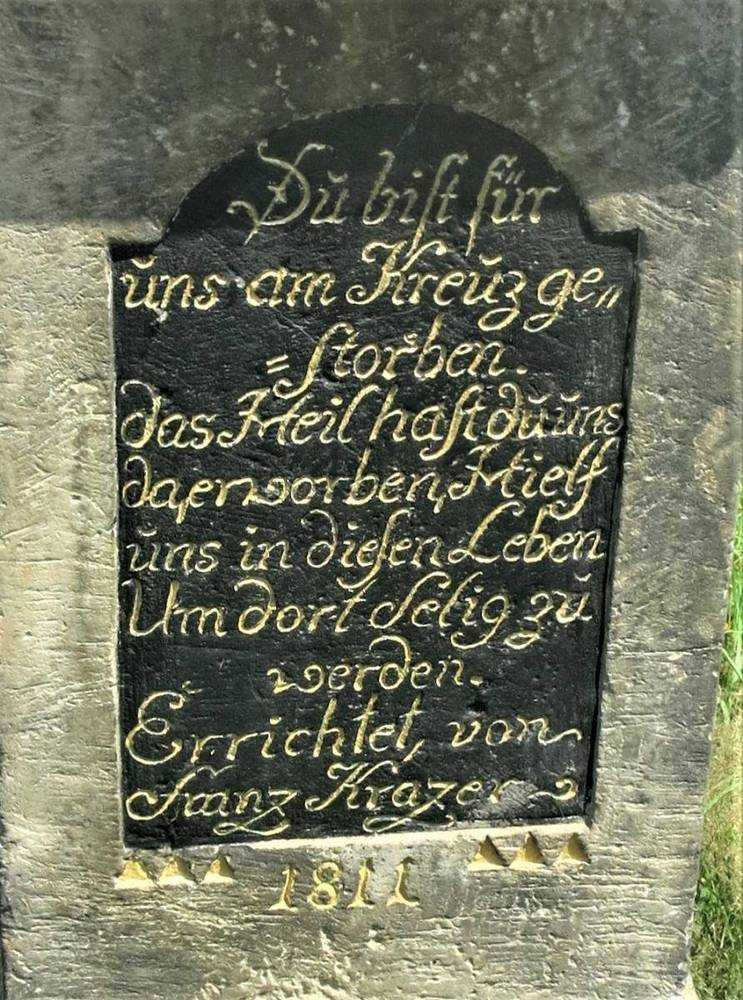 Dŭ bist für
ŭns am Kreŭz ge„
=storben.
das Heil hast dŭ ŭns
da, erworben, Hielf
ŭns in diesen Leben
Um dort Selig zŭ
werden.
Errichtet, von
Franz Krazer
1811